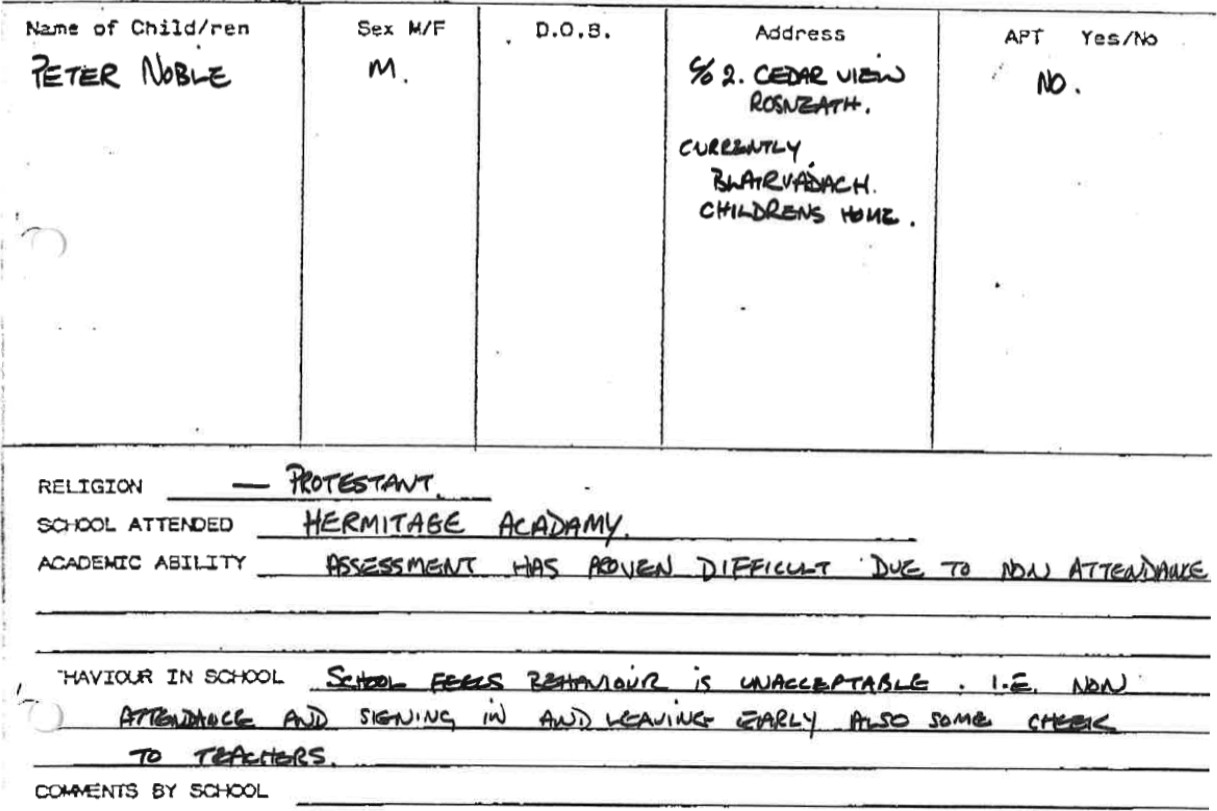 Name of Child/ren Sex M/F D.O.B. Address APT Yes/No
PETER NOBLE M. C/O 2. CEDAR VIEW NO.
ROSNEATH.
CURRENTLY
BLAIRVADACH.
CHILDRENS HOME.
RELIGION — PROTESTANT.
SCHOOL ATTENDED HERMITAGE ACADAMY.
ACADEMIC ABILITY ASSESSMENT HAS PROVEN DIFFICULT DUE TO NON ATTENDANCE
HAVIOUR IN SCHOOL SCHOOL FEELS BEHAVIOUR IS UNACCEPTABLE. I.E. NON
ATTENDANCE AND SIGNING IN AND LEAVING EARLY ALSO SOME CHEEK
TO TEACHERS.
COMMENTS BY SCHOOL